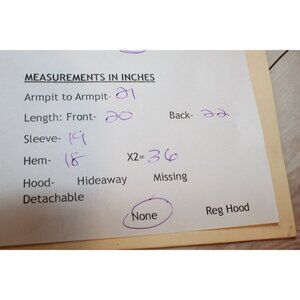 MEASUREMENTS IN INCHES
Armpit to Armpit- 21
Length: Front- 20 Back- 22
Sleeve- 19
Hem- 18 X2= 36
Hood- Hideaway Missing
Detachable
None Reg Hood